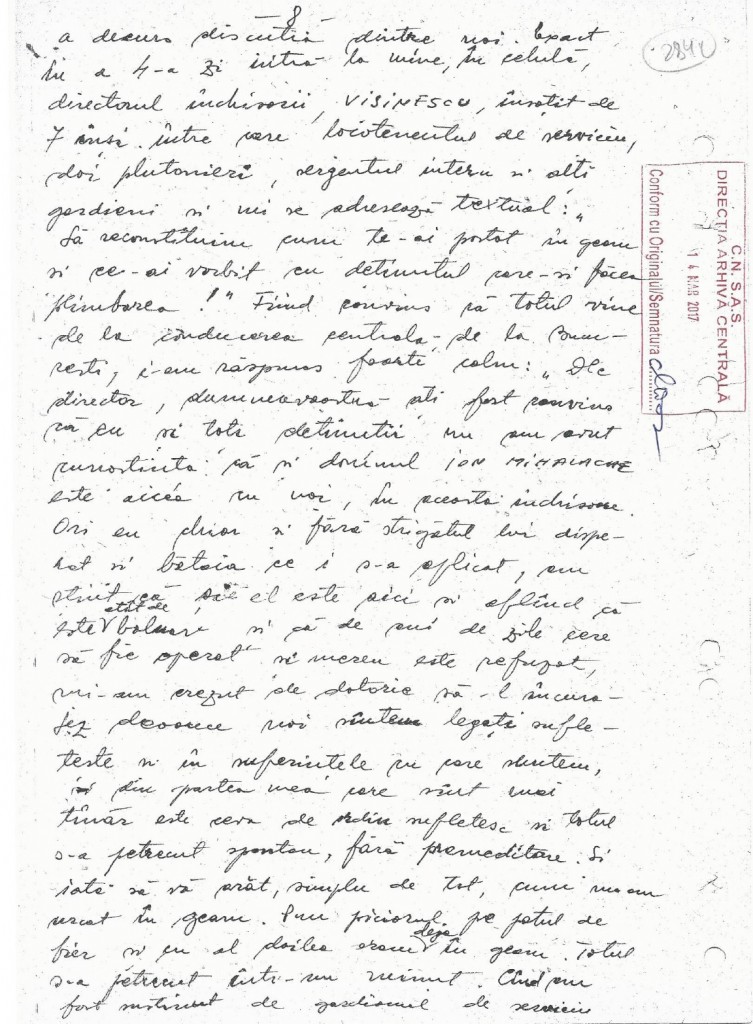 8
284 V
a decurs discuția dintre noi. Exact
în a 4-a zi intră la mine, în celulă,
directorul închisorii, VISINESCU, însoțit de
7 inși între care locotenentul de serviciu,
doi plutonieri, sergentul intern si alți
gardieni si mi se adresează textual: „
Să reconstituim cum te-ai postat în geam
si ce-ai vorbit cu deținutul care-si făcea
plimbarea!" Fiind convins că totul vine
de la conducerea centrala, de la Bucu-
resti, i-am răspuns foarte calm: „Dle
director, dumneavoastră ati fost convins
că eu si toti deținutii nu am avut
cunostiinta că si domnul ION MIHALACHE
este aicea cu noi, în aceasta inchisoare.
Ori eu chiar si fără strigătul lui dispe-
rat si bataia ce i s-a aplicat, am
stiut că si el este aici si aflînd că
este atât de bolnav si că de ani de zile cere
să fie operat si mereu este refuzat,
mi-am crezut de datorie să-l încura-
jez deoarece noi sîntem legați sufle-
teste si în suferintele in care sîntem,
si din partea mea care sînt mai
tînăr este ceva de ordin sufletesc si totul
s-a petrecut spontan, fără premeditare. Si
iată să vă arăt, simplu de tot, cum m-am
urcat în geam. Pun piciorul pe patul de
fier si cu al doilea eram deja în geam. Totul
s-a petrecut într-un minut. Cînd am
fost surprins de gardianul de serviciu
C.N. S.A.S.
DIRECȚIA ARHIVĂ CENTRALĂ
1 4 MAR 2017
Conform cu Originalul/Semnatura